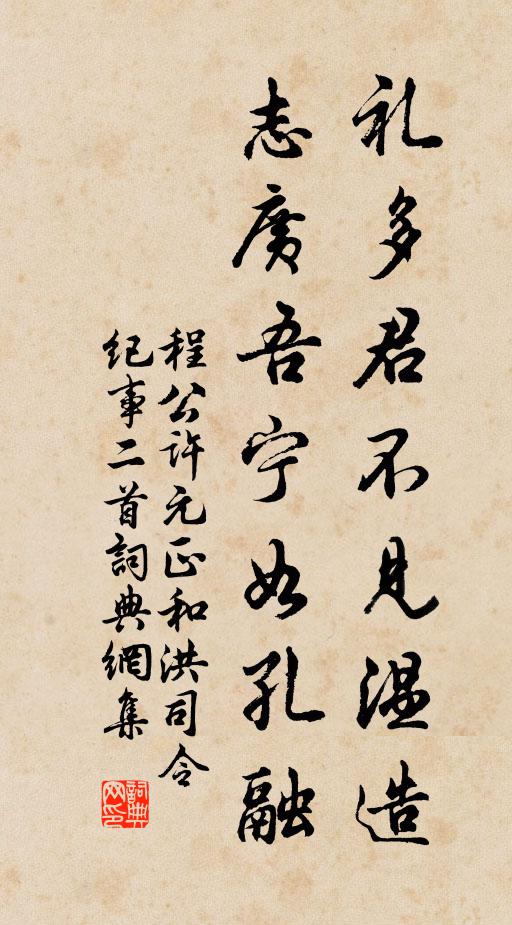 礼多君不见温造
志广吾宁如孔融
程公许元正和洪司令
纪事二首词典網集
詞典网印